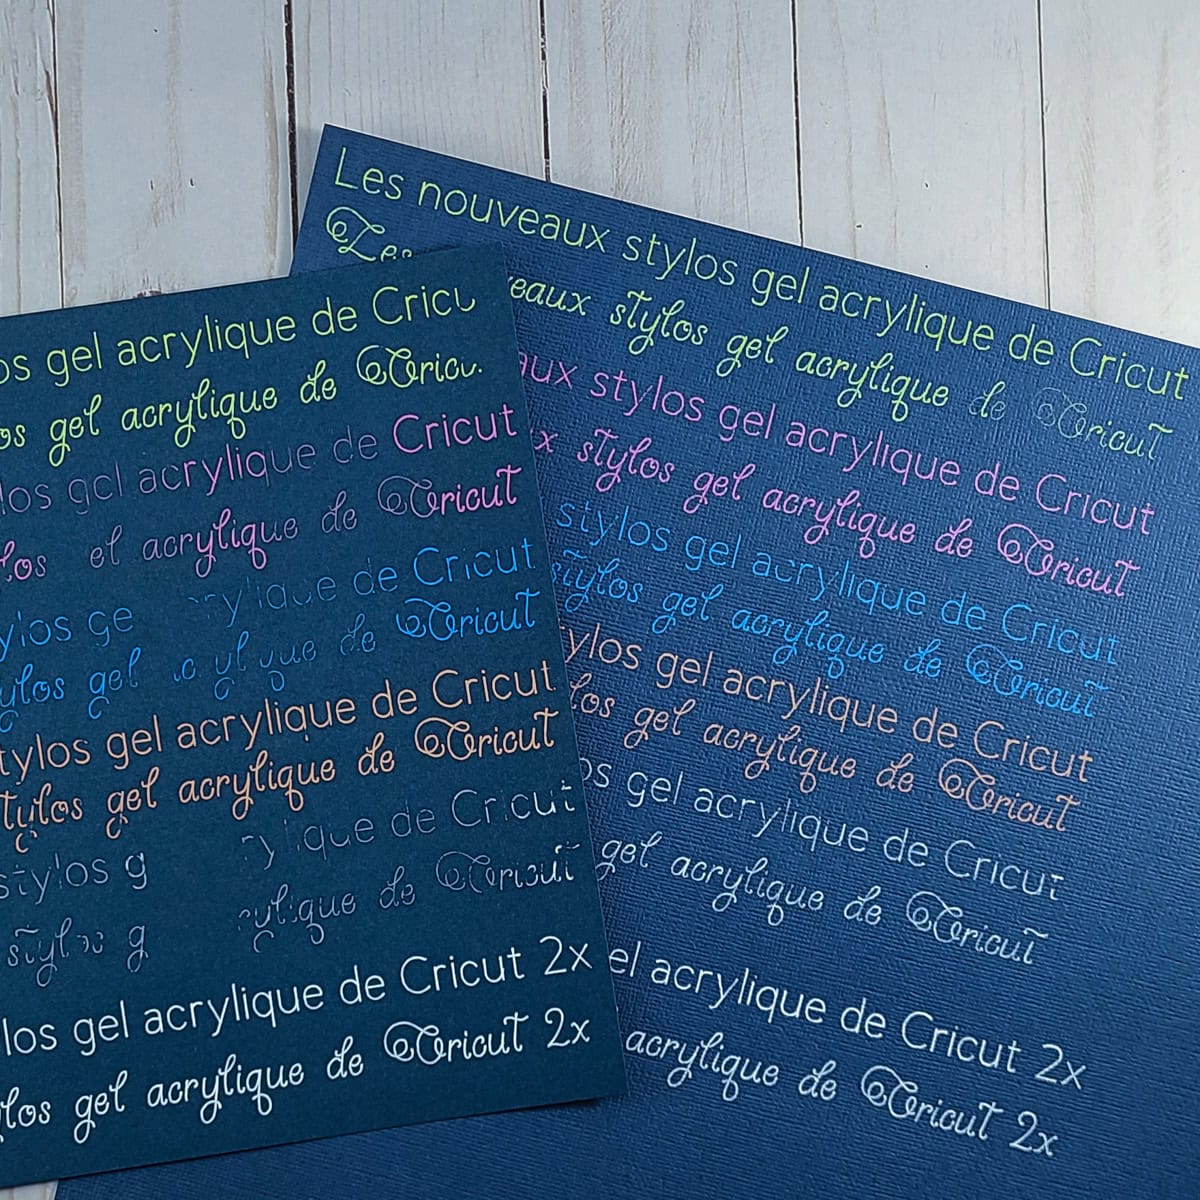 os gel acrylique de Cricu
os gel acrylique de Cricu
los gel acrylique de Cricut
los el acrylique de Cricut
ylos ge rylique de Cricut
ylos gel que de Cricut
tylos gel acrylique de Cricut
tylos gel acrylique de Cricut
stylos g ylique de Cricut
stylos g rylique de Cricut
los gel acrylique de Cricut 2x
los gel acrylique de Cricut 2x
Les nouveaux stylos gel acrylique de Cricut
Les eaux stylos gel acrylique de Cricut
aux stylos gel acrylique de Cricut
x stylos gel acrylique de Cricut
stylos gel acrylique de Cricut
stylos gel acrylique de Cricut
tylos gel acrylique de Cricut
los gel acrylique de Cricut
os gel acrylique de Cricut
gel acrylique de Cricut
el acrylique de Cricut 2x
acrylique de Cricut 2x